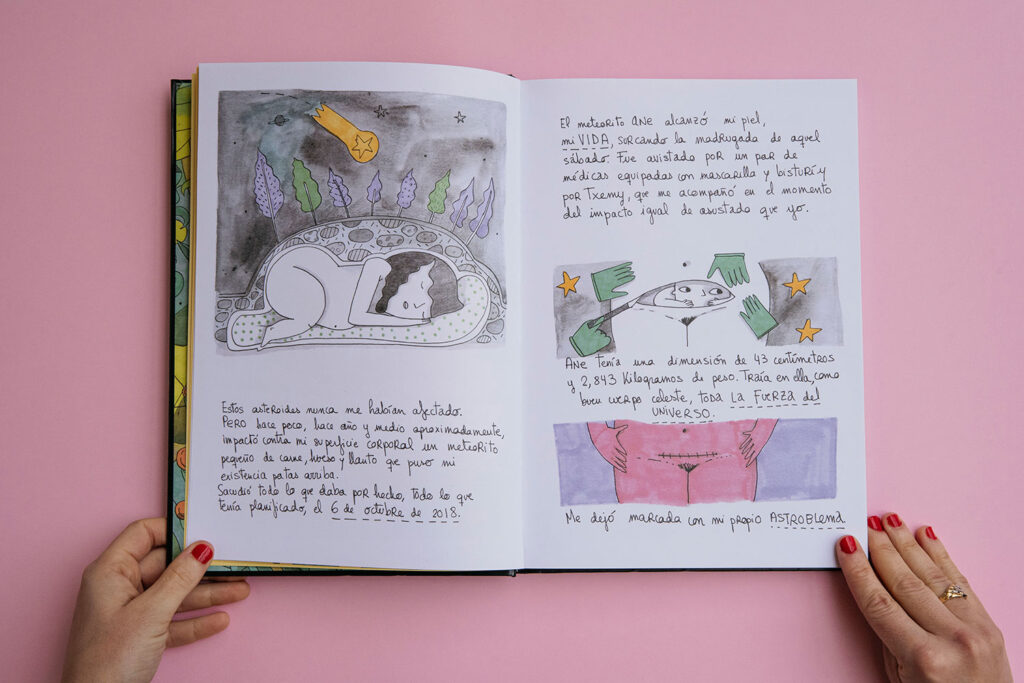 Estos asteroides nunca me habían afectado.
PERO hace poco, hace año y medio aproximadamente,
impactó contra mi superficie corporal un meteorito
pequeño de carne, hueso y llanto que puso mi
existencia patas arriba.
Sacudió todo lo que daba por hecho, todo lo que
tenía planificado, el 6 de octubre de 2018.
El meteorito ANE alcanzó mi piel,
mi VIDA, surcando la madrugada de aquel
sábado. Fue avistado por un par de
médicas equipadas con mascarilla y bisturí y
por Txemy, que me acompañó en el momento
del impacto igual de asustado que yo.
ANE tenía una dimensión de 43 centímetros
y 2,843 Kilogramos de peso. Traía en ella, como
buen cuerpo celeste, toda LA FUERZA del
UNIVERSO.
Me dejó marcada con mi propio ASTROBLEMA